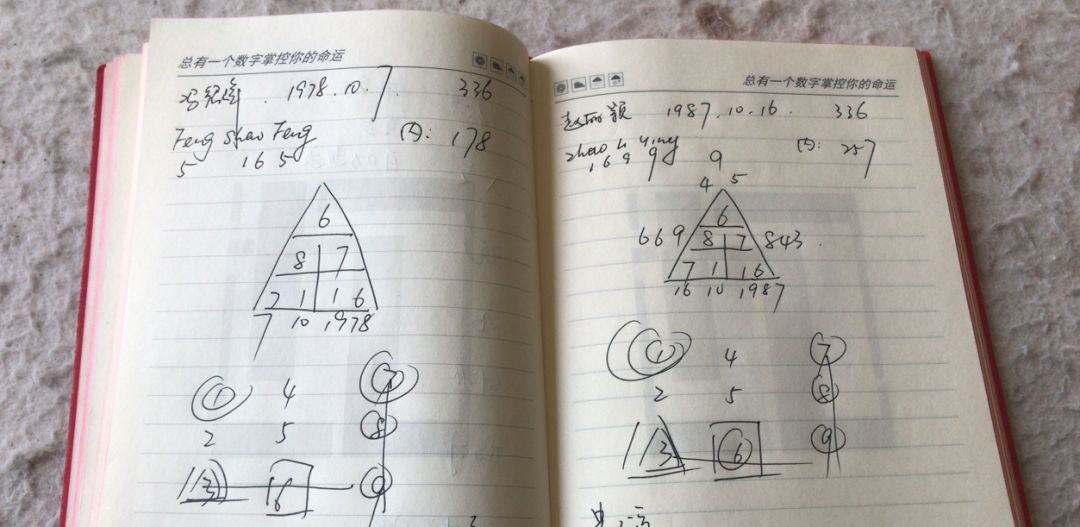 总有一个数字掌控你的命运
冯绍峰. 1978.10.7 336
Feng Shao Feng 内: 178
5 16 5
6
8 7
7 1 1 6
7 10 1978
1 4 7
2 5 8
3 6 9
总有一个数字掌控你的命运
赵丽颖 1987.10.16. 336
Zhao Li Ying 内: 257
1 6 9 9 9
4 5
6
669 8 7 843.
7 1 1 6
16 10 1987
1 4 7
2 5 8
3 6 9